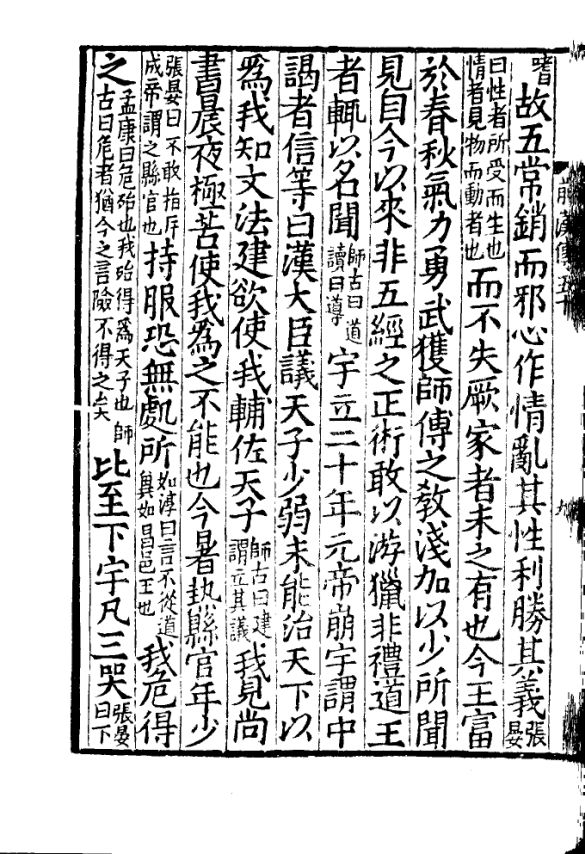 嗜故五常銷而邪心作情亂其性利勝其義張晏
曰性者所受而生也情者見物而動者也而不失厥家者未之有也今王富
於春秋氣力勇武獲師傅之敎淺加以少所聞
見自今以來非五經之正術敢以游獵非禮道王
者輒以名聞師古曰道讀曰導宇立二十年元帝崩宇謂中
謁者信等曰漢大臣議天子少弱未能治天下以
爲我知文法建欲使我輔佐天子師古曰建謂立其議我見尚
書晨夜極苦使我爲之不能也今暑熱縣官年少
張晏曰不敢指斥成帝謂之縣官也持服恐無處所如淳曰言不從道兾如昌邑王也我危得
之孟康曰危殆也我殆得爲天子也師古曰危者猶今之言險不得之矣比至下宇凡三哭張晏曰下